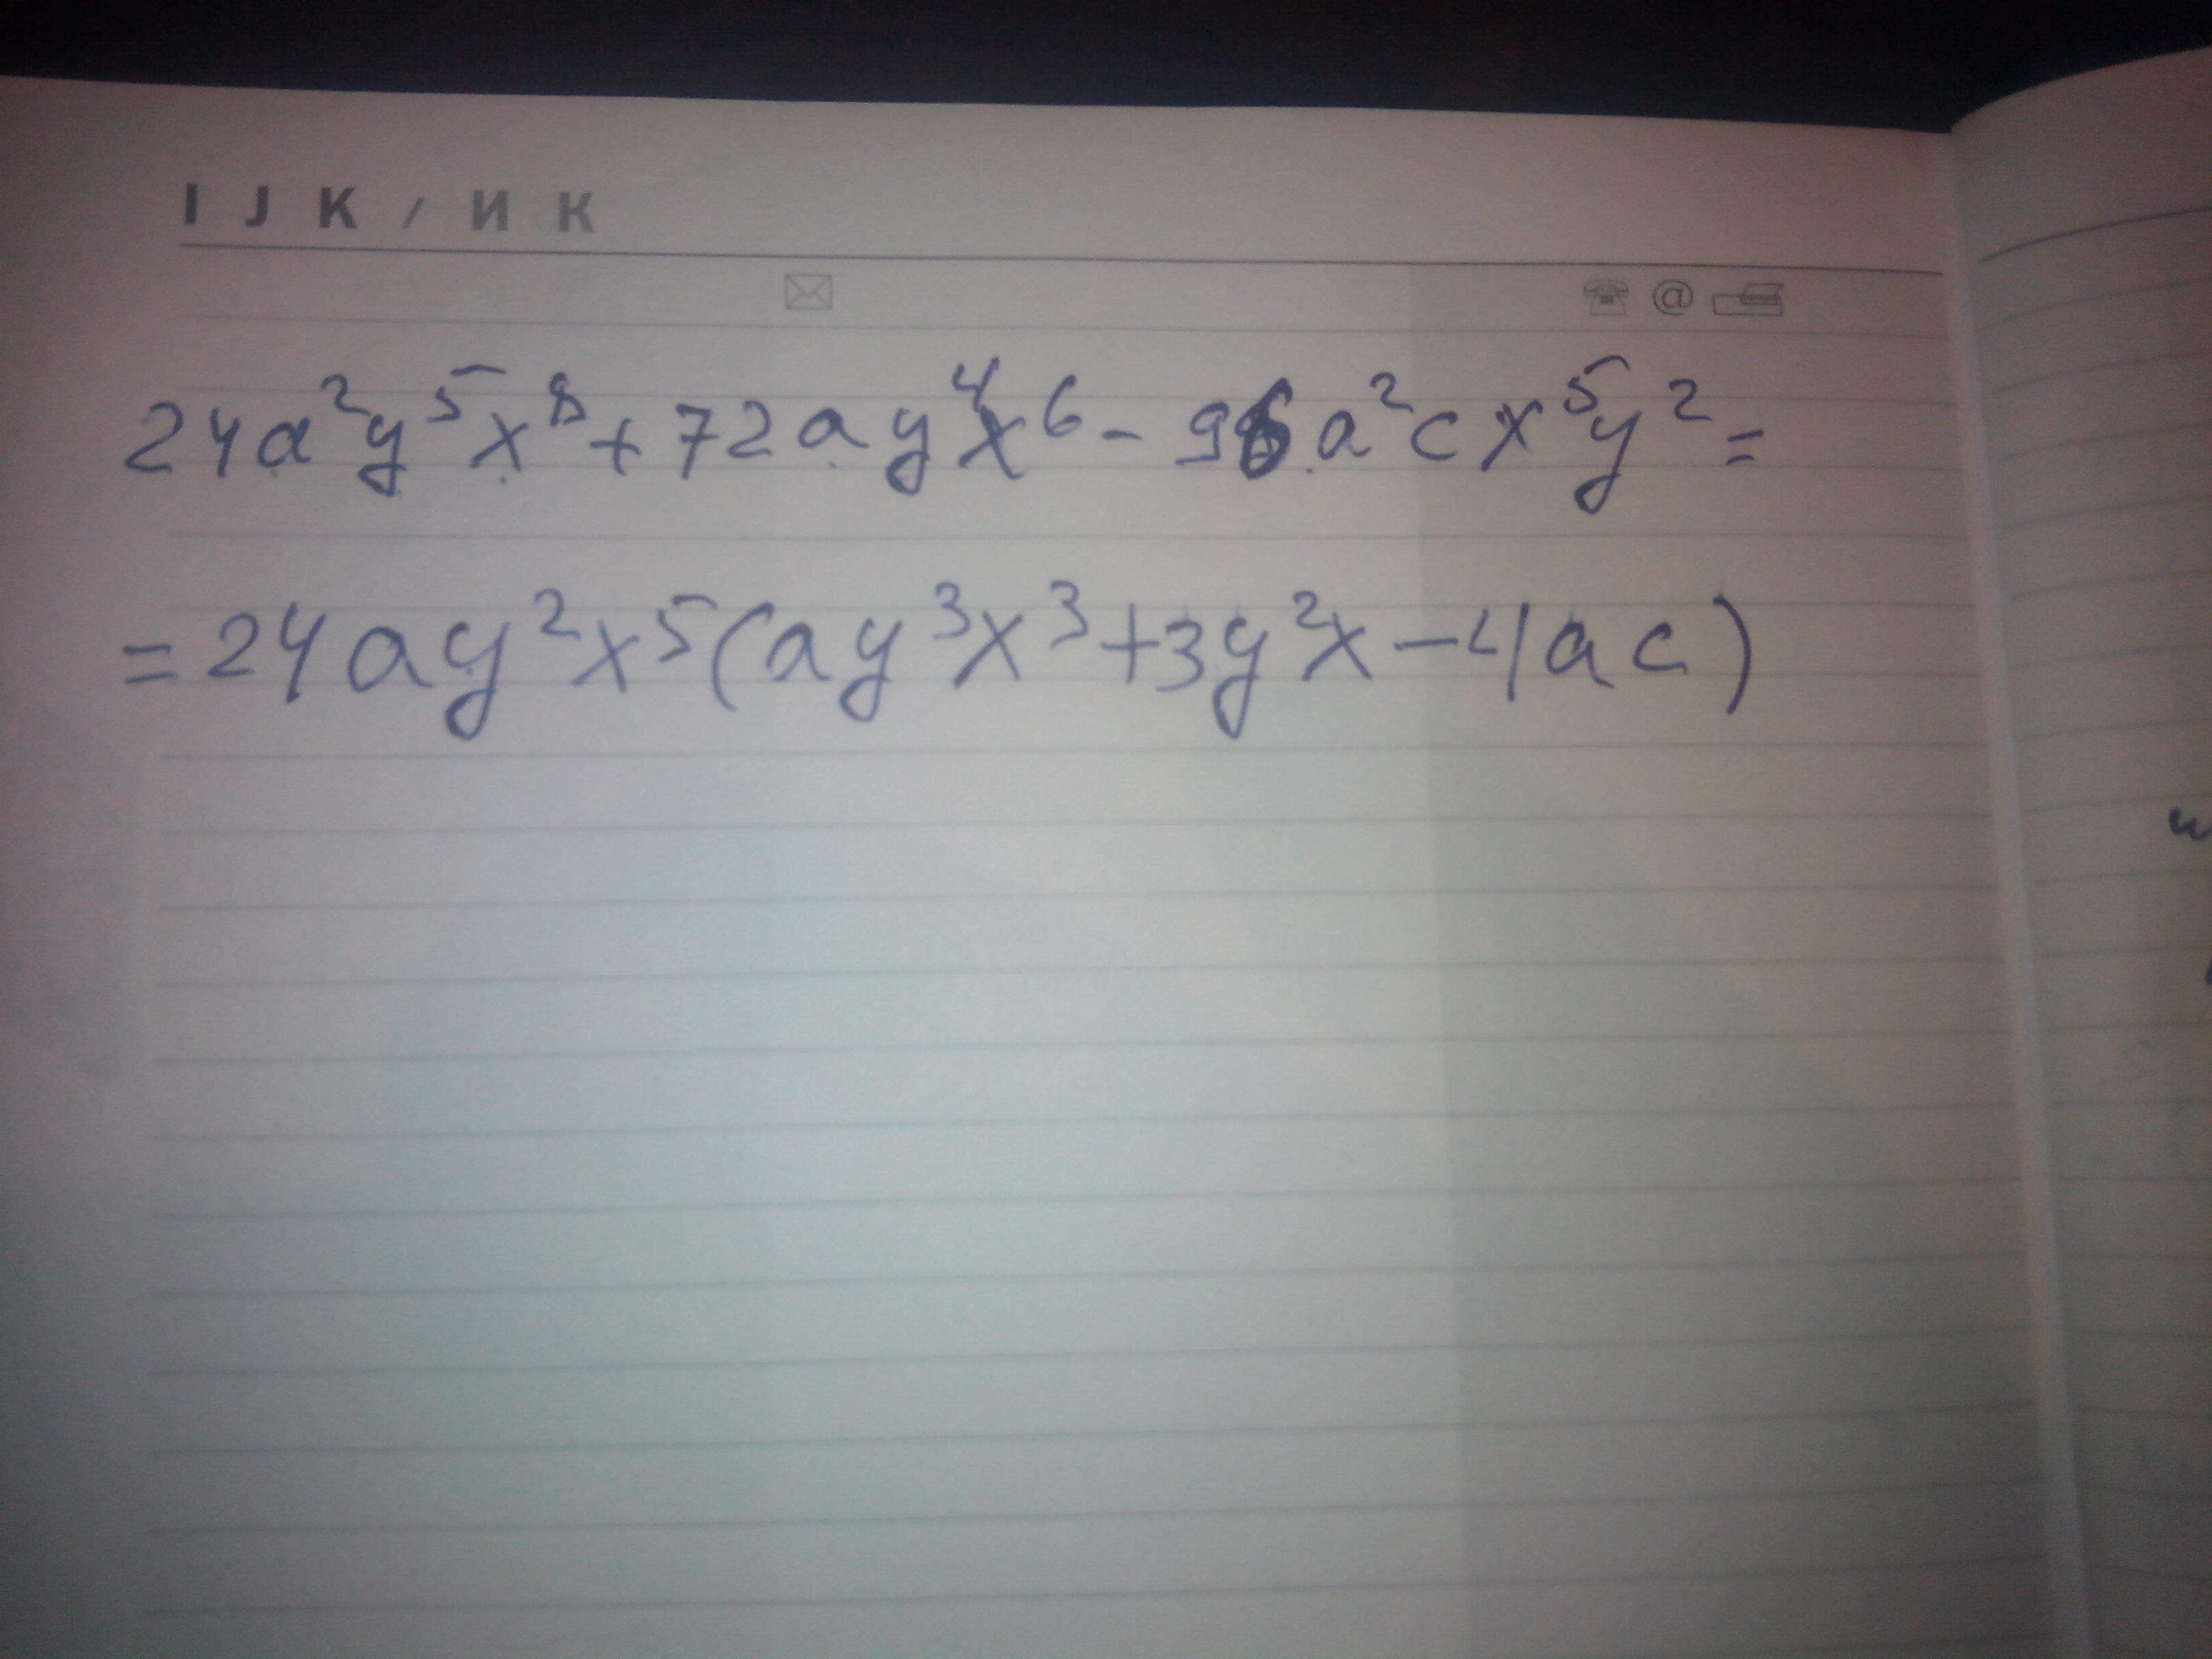 I J K / И К
@
24a²y⁵x⁸+72ay⁴x⁶-96a²cx⁵y²=
=24ay²x⁵(ay³x³+3y²x-4ac)